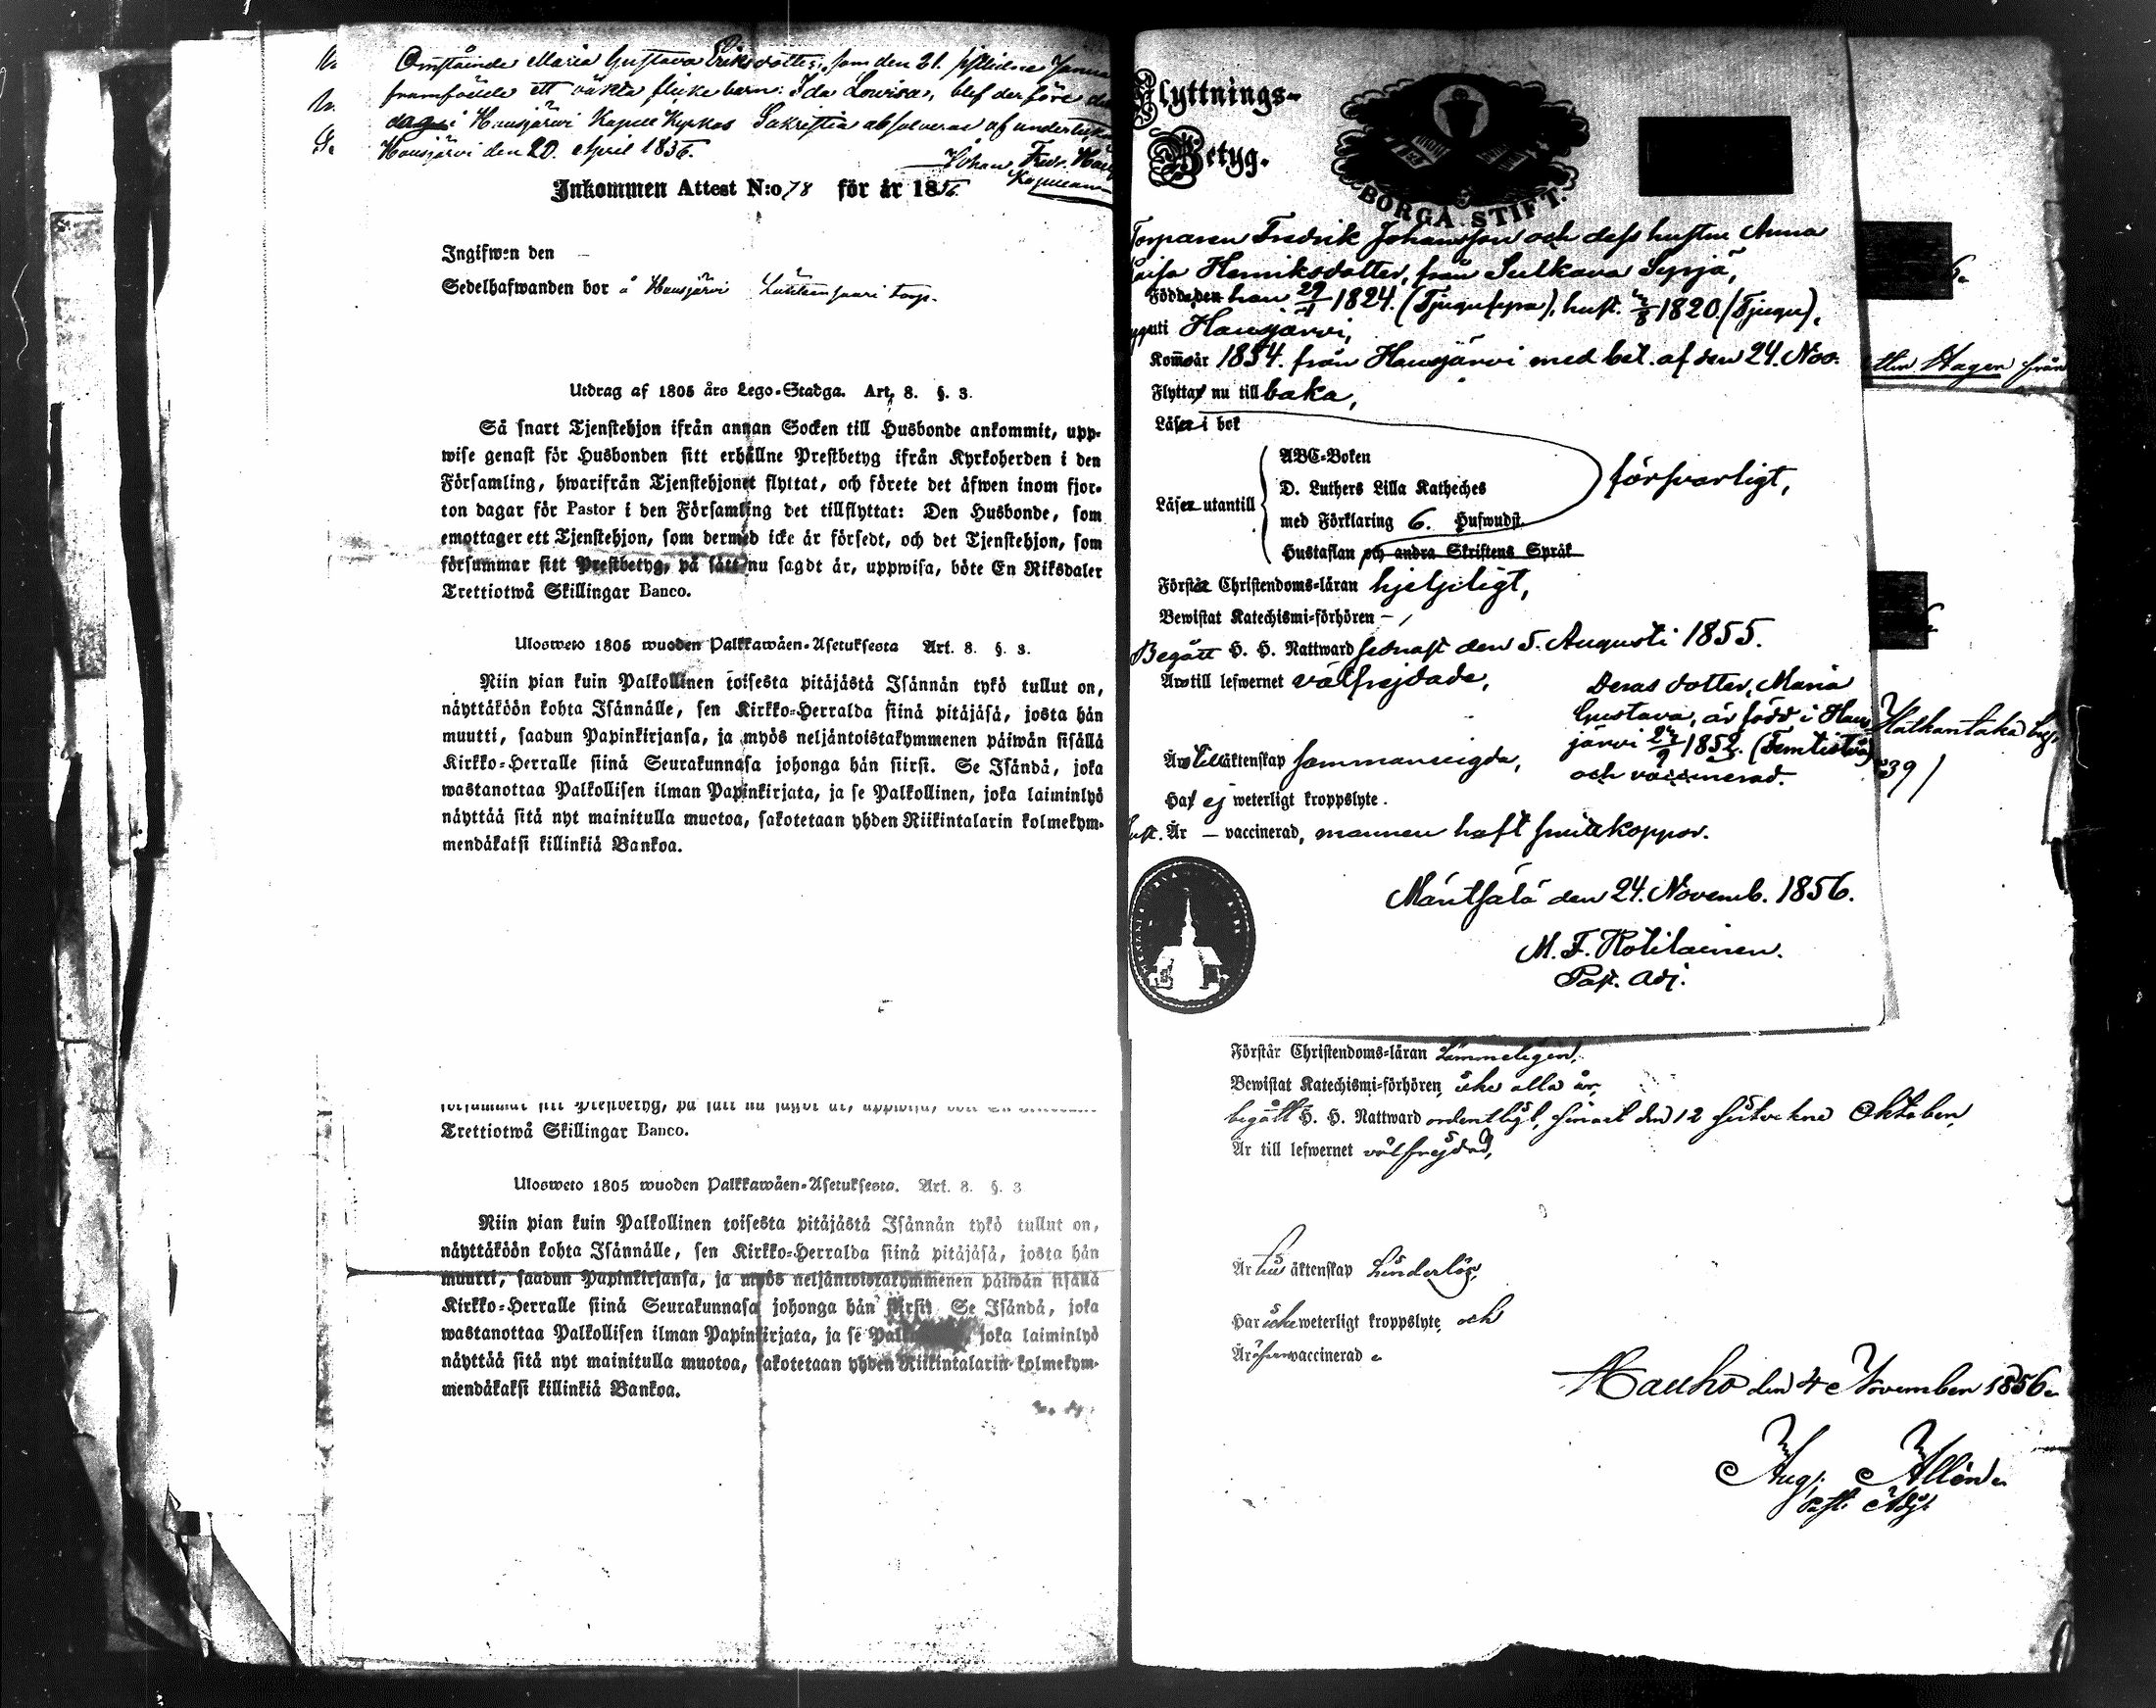 Omstående Maria Gustava Eriksdotter, som den 21. sistlidne
framfödde ett oäkta flicke barn: Ida Lovisa, blef derföre
dagen i Hausjärvi Kapell Kyrkas Sakristia absolveras af
Hausjärvi den 20. April 1856.
Johan Fredr.
Inkommen Attest N:o 78 för år 1856.
Ingifwen den –
Sedelhafwanden bor å Hausjärvi torp.
Utdrag af 1805 års Lego-Stadga. Art. 8. §. 3.
Så snart Tjenstehjon ifrån annan Socken till Husbonde ankommit, upp-
wise genast för Husbonden sitt erhållne Prestbetyg ifrån Kyrkoherden i den
Församling, hwarifrån Tjenstehjonet flyttat, och förete det äfwen inom fjor-
ton dagar för Pastor i den Församling det tillflyttat: Den Husbonde, som
emottager ett Tjenstehjon, som dermed icke är försedt, och det Tjenstehjon, som
försummar sitt Prestbetyg, på sätt nu sagdt är, uppwisa, böte En Riksdaler
Trettiotwå Skillingar Banco.
Ulosweto 1805 wuoden Palkkawäen-Asetuksesta Art. 8. §. 3.
Niin pian kuin Palkollinen toisesta pitäjästä Isännän tykö tullut on,
näyttäköön kohta Isännälle, sen Kirkko-Herralda siinä pitäjäsä, josta hän
muutti, saadun Papinkirjansa, ja myös neljäntoistakymmenen päiwän sisällä
Kirkko-Herralle siinä Seurakunnasa johonga hän siirsi. Se Isändä, joka
wastanottaa Palkollisen ilman Papinkirjata, ja se Palkollinen, joka laiminlyö
näyttää sitä nyt mainitulla muotoa, sakotetaan yhden Riikintalarin kolmekym-
mendäkaksi killinkiä Bankoa.
försummar sitt Prestbetyg, på sätt nu sagdt är, uppwisa,
Trettiotwå Skillingar Banco.
Ulosweto 1805 wuoden Palkkawäen-Asetuksesta. Art. 8. §. 3
Niin pian kuin Palkollinen toisesta pitäjästä Isännän tykö tullut on,
näyttäköön kohta Isännälle, sen Kirkko-Herralda siinä pitäjäsä, josta hän
muutti, saadun Papinkirjansa, ja myös neljäntoistakymmenen päiwän sisällä
Kirkko-Herralle siinä Seurakunnasa johonga hän siirsi. Se Isändä, joka
wastanottaa Palkollisen ilman Papinkirjata, ja se joka laiminlyö
näyttää sitä nyt mainitulla muotoa, sakotetaan yhden Riikintalarin kolmekym-
mendäkaksi killinkiä Bankoa.
Flyttnings-
Betyg.
BORGÅ STIFT.
Torparen Fredrik Johansson och dess hustru Anna
Caisa Henriksdotter, från Sulkava Syrjä,
Födde den han 29/1 1824. (Tjugufyra), hust. 1820. (Tjugu),
uti Hausjärvi,
Kom år 1854. från Hausjärvi med bet. af den 24. Nov.
Flyttar nu till baka,
Läser i bok
ABC-Boken
D. Luthers Lilla Katheches
Läser utantill
med Förklaring 6. Hufwudst.
försvarligt,
Hustaflan och andra Skriftens Språk
Förstår Christendoms-läran hjelpligt,
Bewistat Katechismi-förhören –
Begått H. H. Nattward sednast den 5. Augusti 1855.
Äro till lefwernet välfrejdade,
Deras dotter, Maria
Gustava, är född i Haus-
järvi 1852. (Femtiotvå)
och vaccinerad.
Äro till äktenskap sammanvigda,
Har ej weterligt kroppslyte.
hust. Är – vaccinerad, mannen haft smittkoppor.
Mäntsälä den 24. Novemb. 1856.
M. F. Rotilainen.
Past. Adj.
Hagen från
Förstår Christendoms-läran
Bewistat Katechismi-förhören, icke alla år,
begått H. H. Nattward ordentligt, senast den 12 sistvekne Oktober,
Är till lefwernet välfrejdad,
Är till äktenskap hinderlös,
Har icke weterligt kroppslyte, och
Är äfven vaccinerad
Hauho den 4 November 1856.
Aug. Allén
Past. Adj.